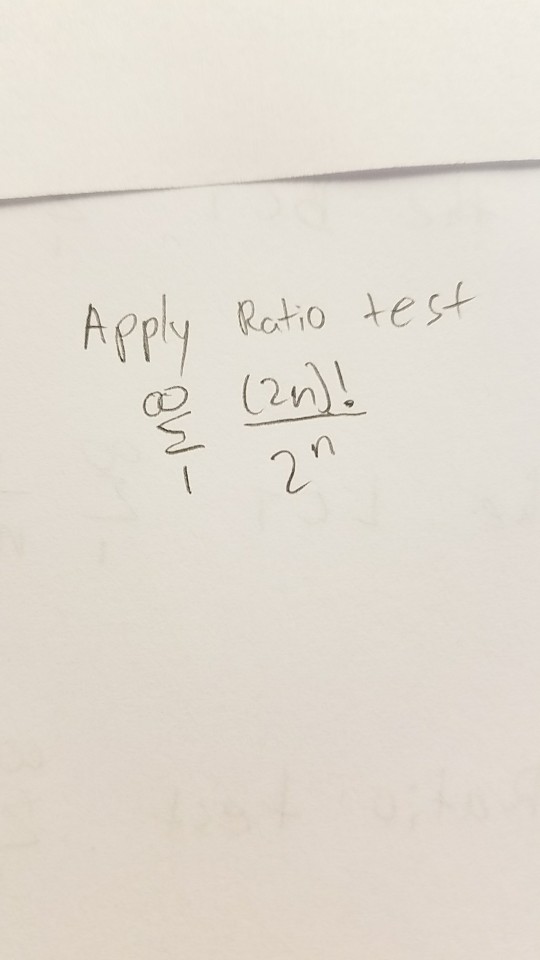 Apply Ratio test
∞ (2n)!
Σ
1 2^n